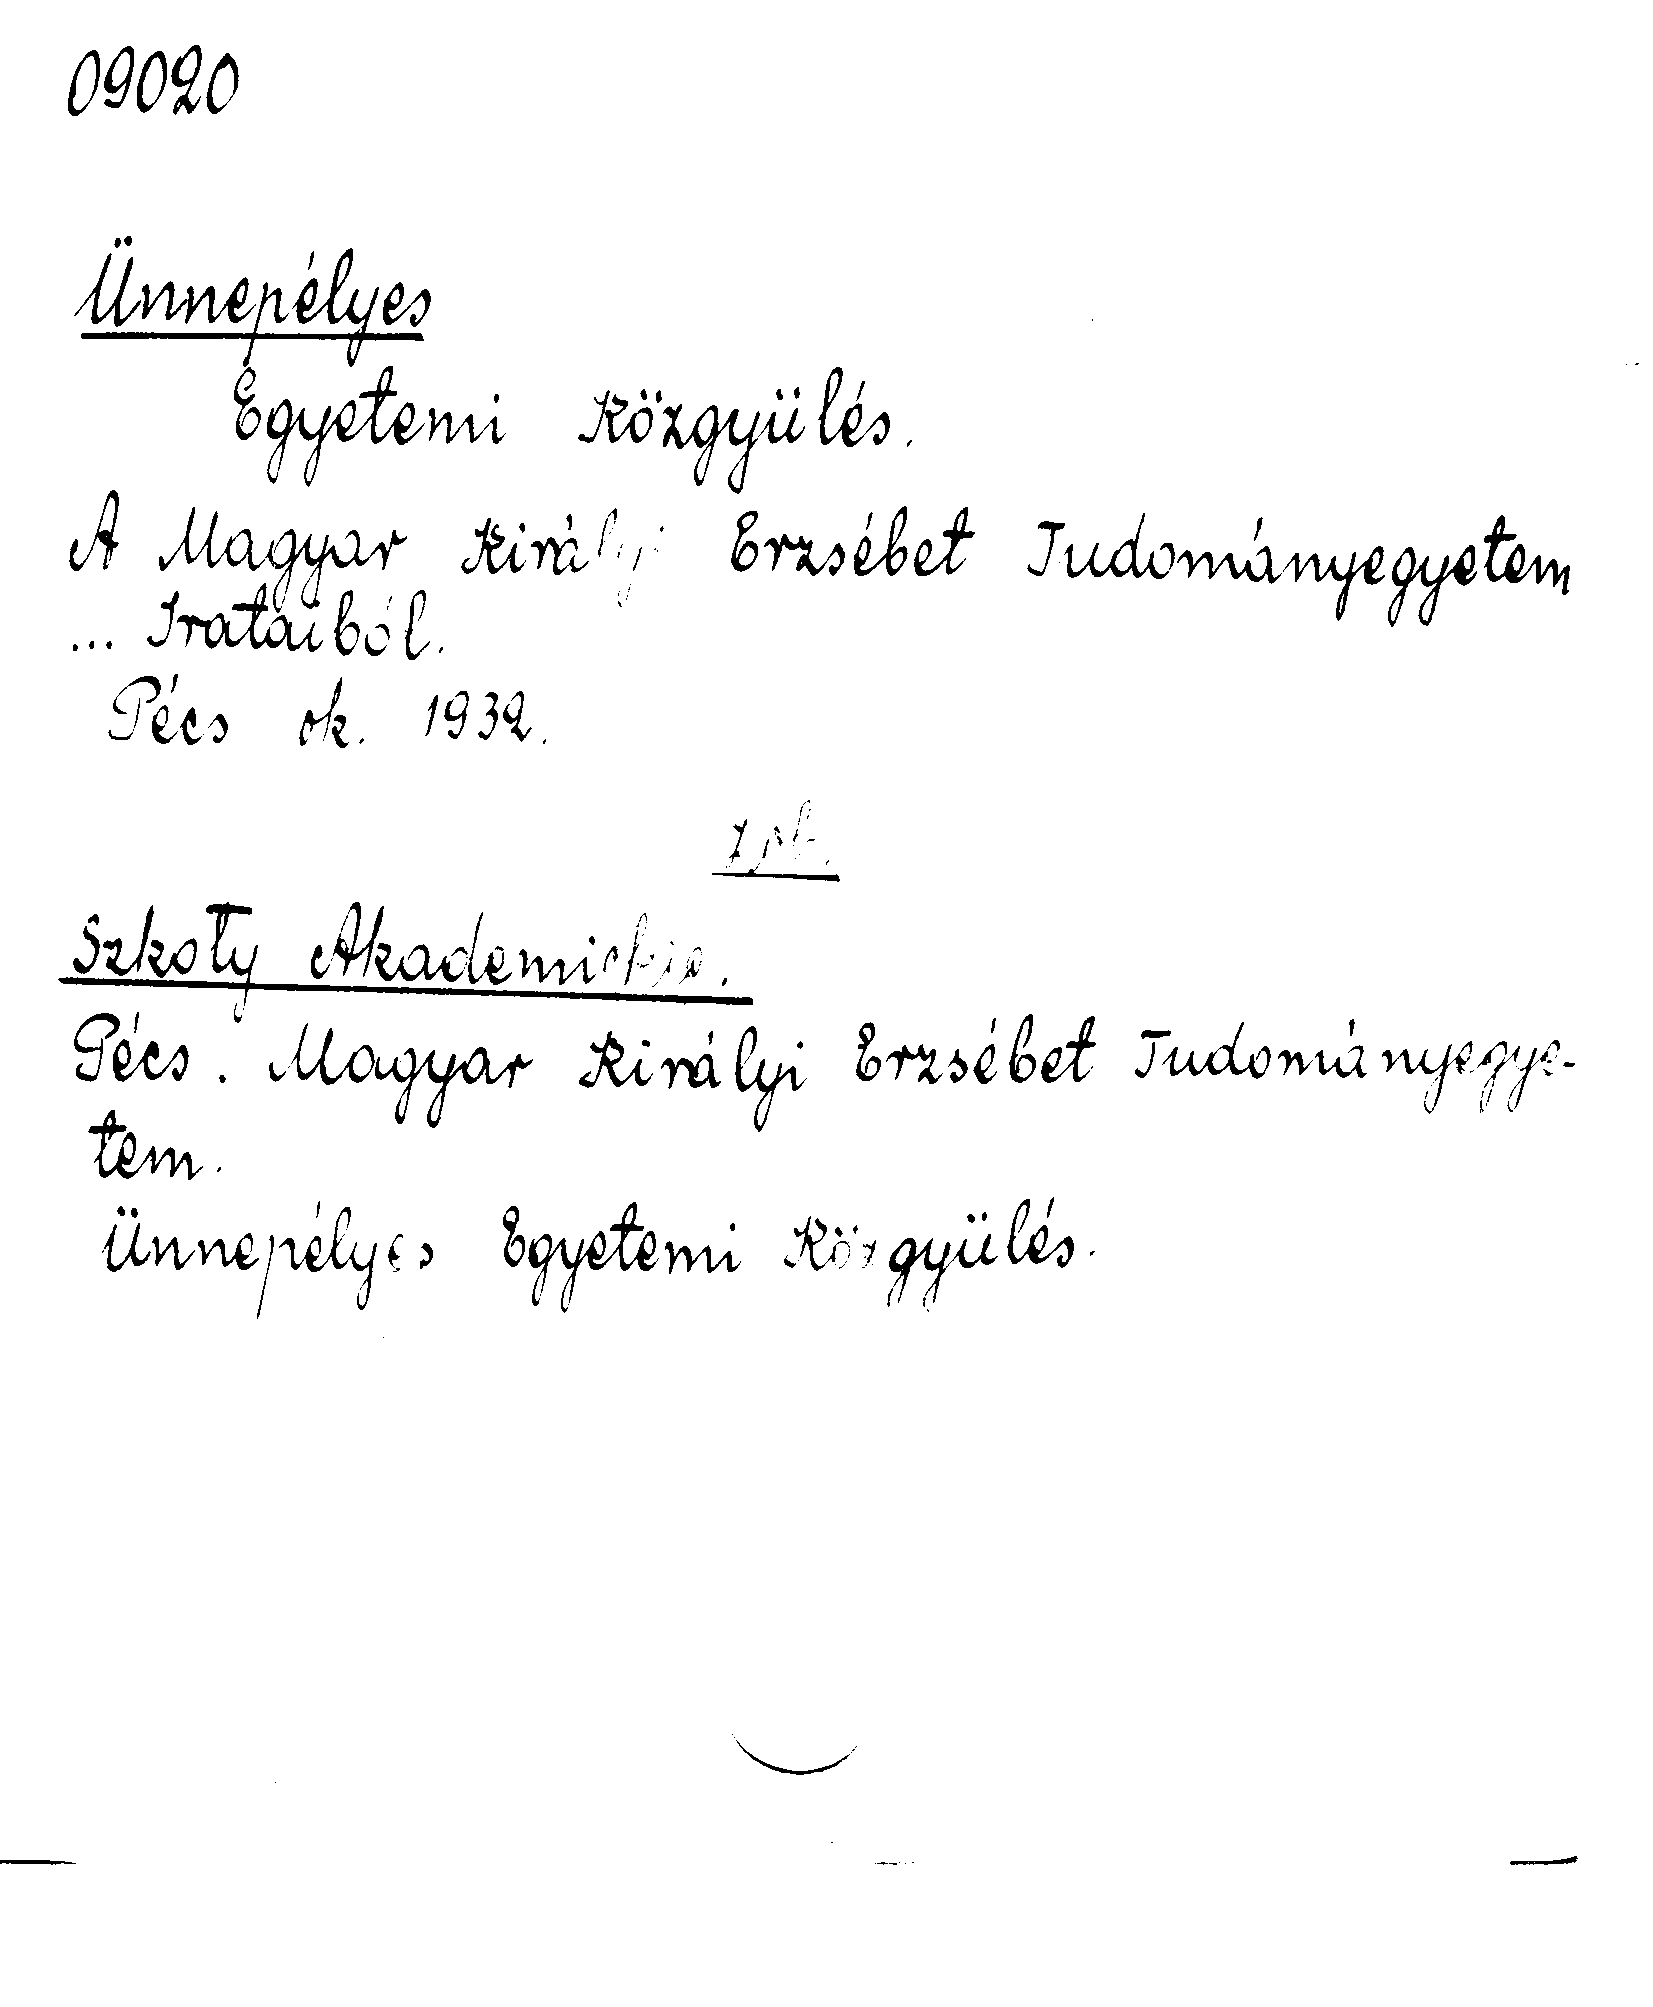 09020
Ünnepélyes
Egyetemi Közgyülés.
A Magyar Királyi Erzsébet Tudományegyetem
... Irataiból.
Pécs ok. 1932.
Szkoły Akademickie.
Pécs. Magyar Királyi Erzsébet Tudományegye-
tem.
Ünnepélyes Egyetemi Közgyülés.